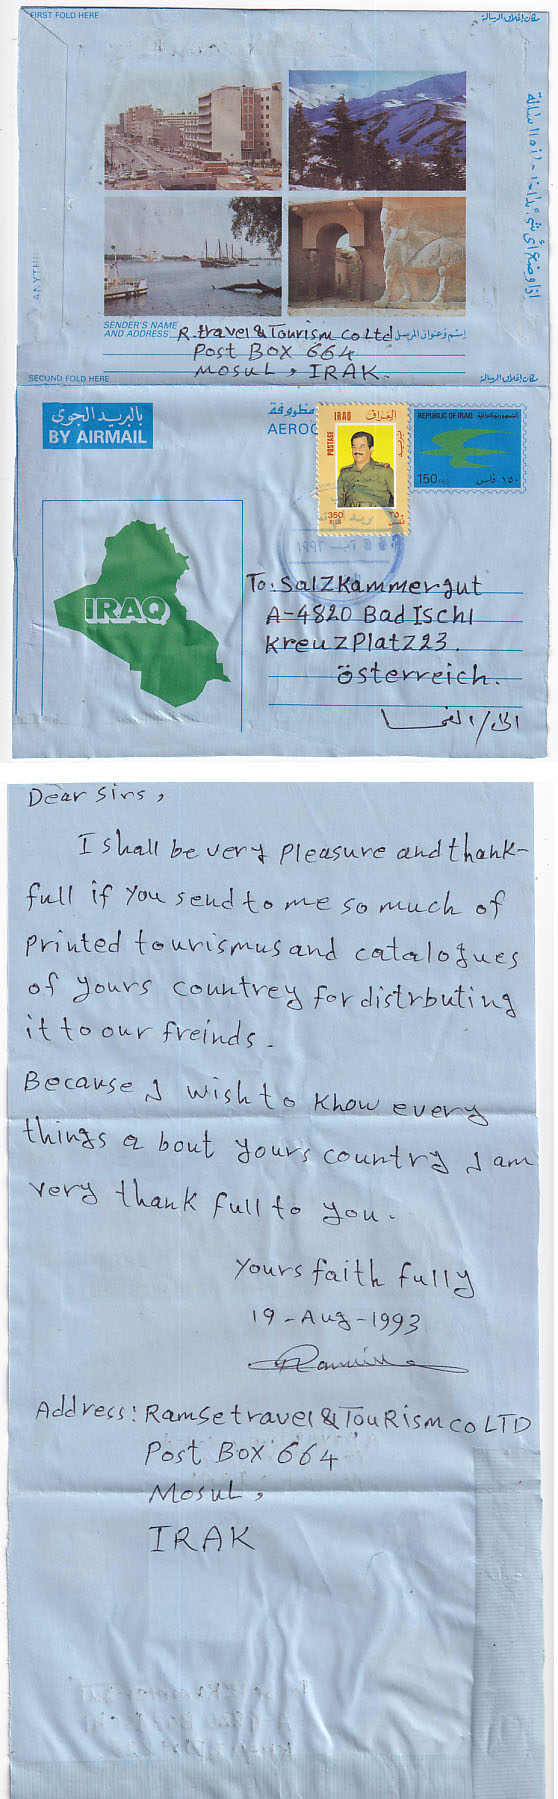 FIRST FOLD HERE
مكان إغلاق الرسالة
اذا وضع أي شيء داخل هذه الرسالة
SENDER'S NAME
AND ADDRESS
R.travel & Tourism co Ltd
إسم وعنوان المرسل
Post Box 664
Mosul, IRAK.
SECOND FOLD HERE
مكان إغلاق الرسالة
بالبريد الجوي
BY AIRMAIL
مظروفة
AEROG
IRAQ العراق
POSTAGE
بريد
350
FILS
٣٥٠
فلس
REPUBLIC OF IRAQ الجمهورية العراقية
150 FILS
١٥٠ فلس
IRAQ
To: Salzkammergut
A-4820 Bad Ischl
KreuzPlatz 23.
Österreich.
الى / النمسا
Dear sirs,
I shall be very pleasure and thank-
full if you send to me so much of
printed tourismus and catalogues
of yours countrey for distrbuting
it to our freinds.
Because I wish to know every
things a bout yours country I am
very thank full to you.
Yours faith fully
19-Aug-1993
Address: Ramsetravel & TouRism co LTD
Post Box 664
Mosul,
IRAK